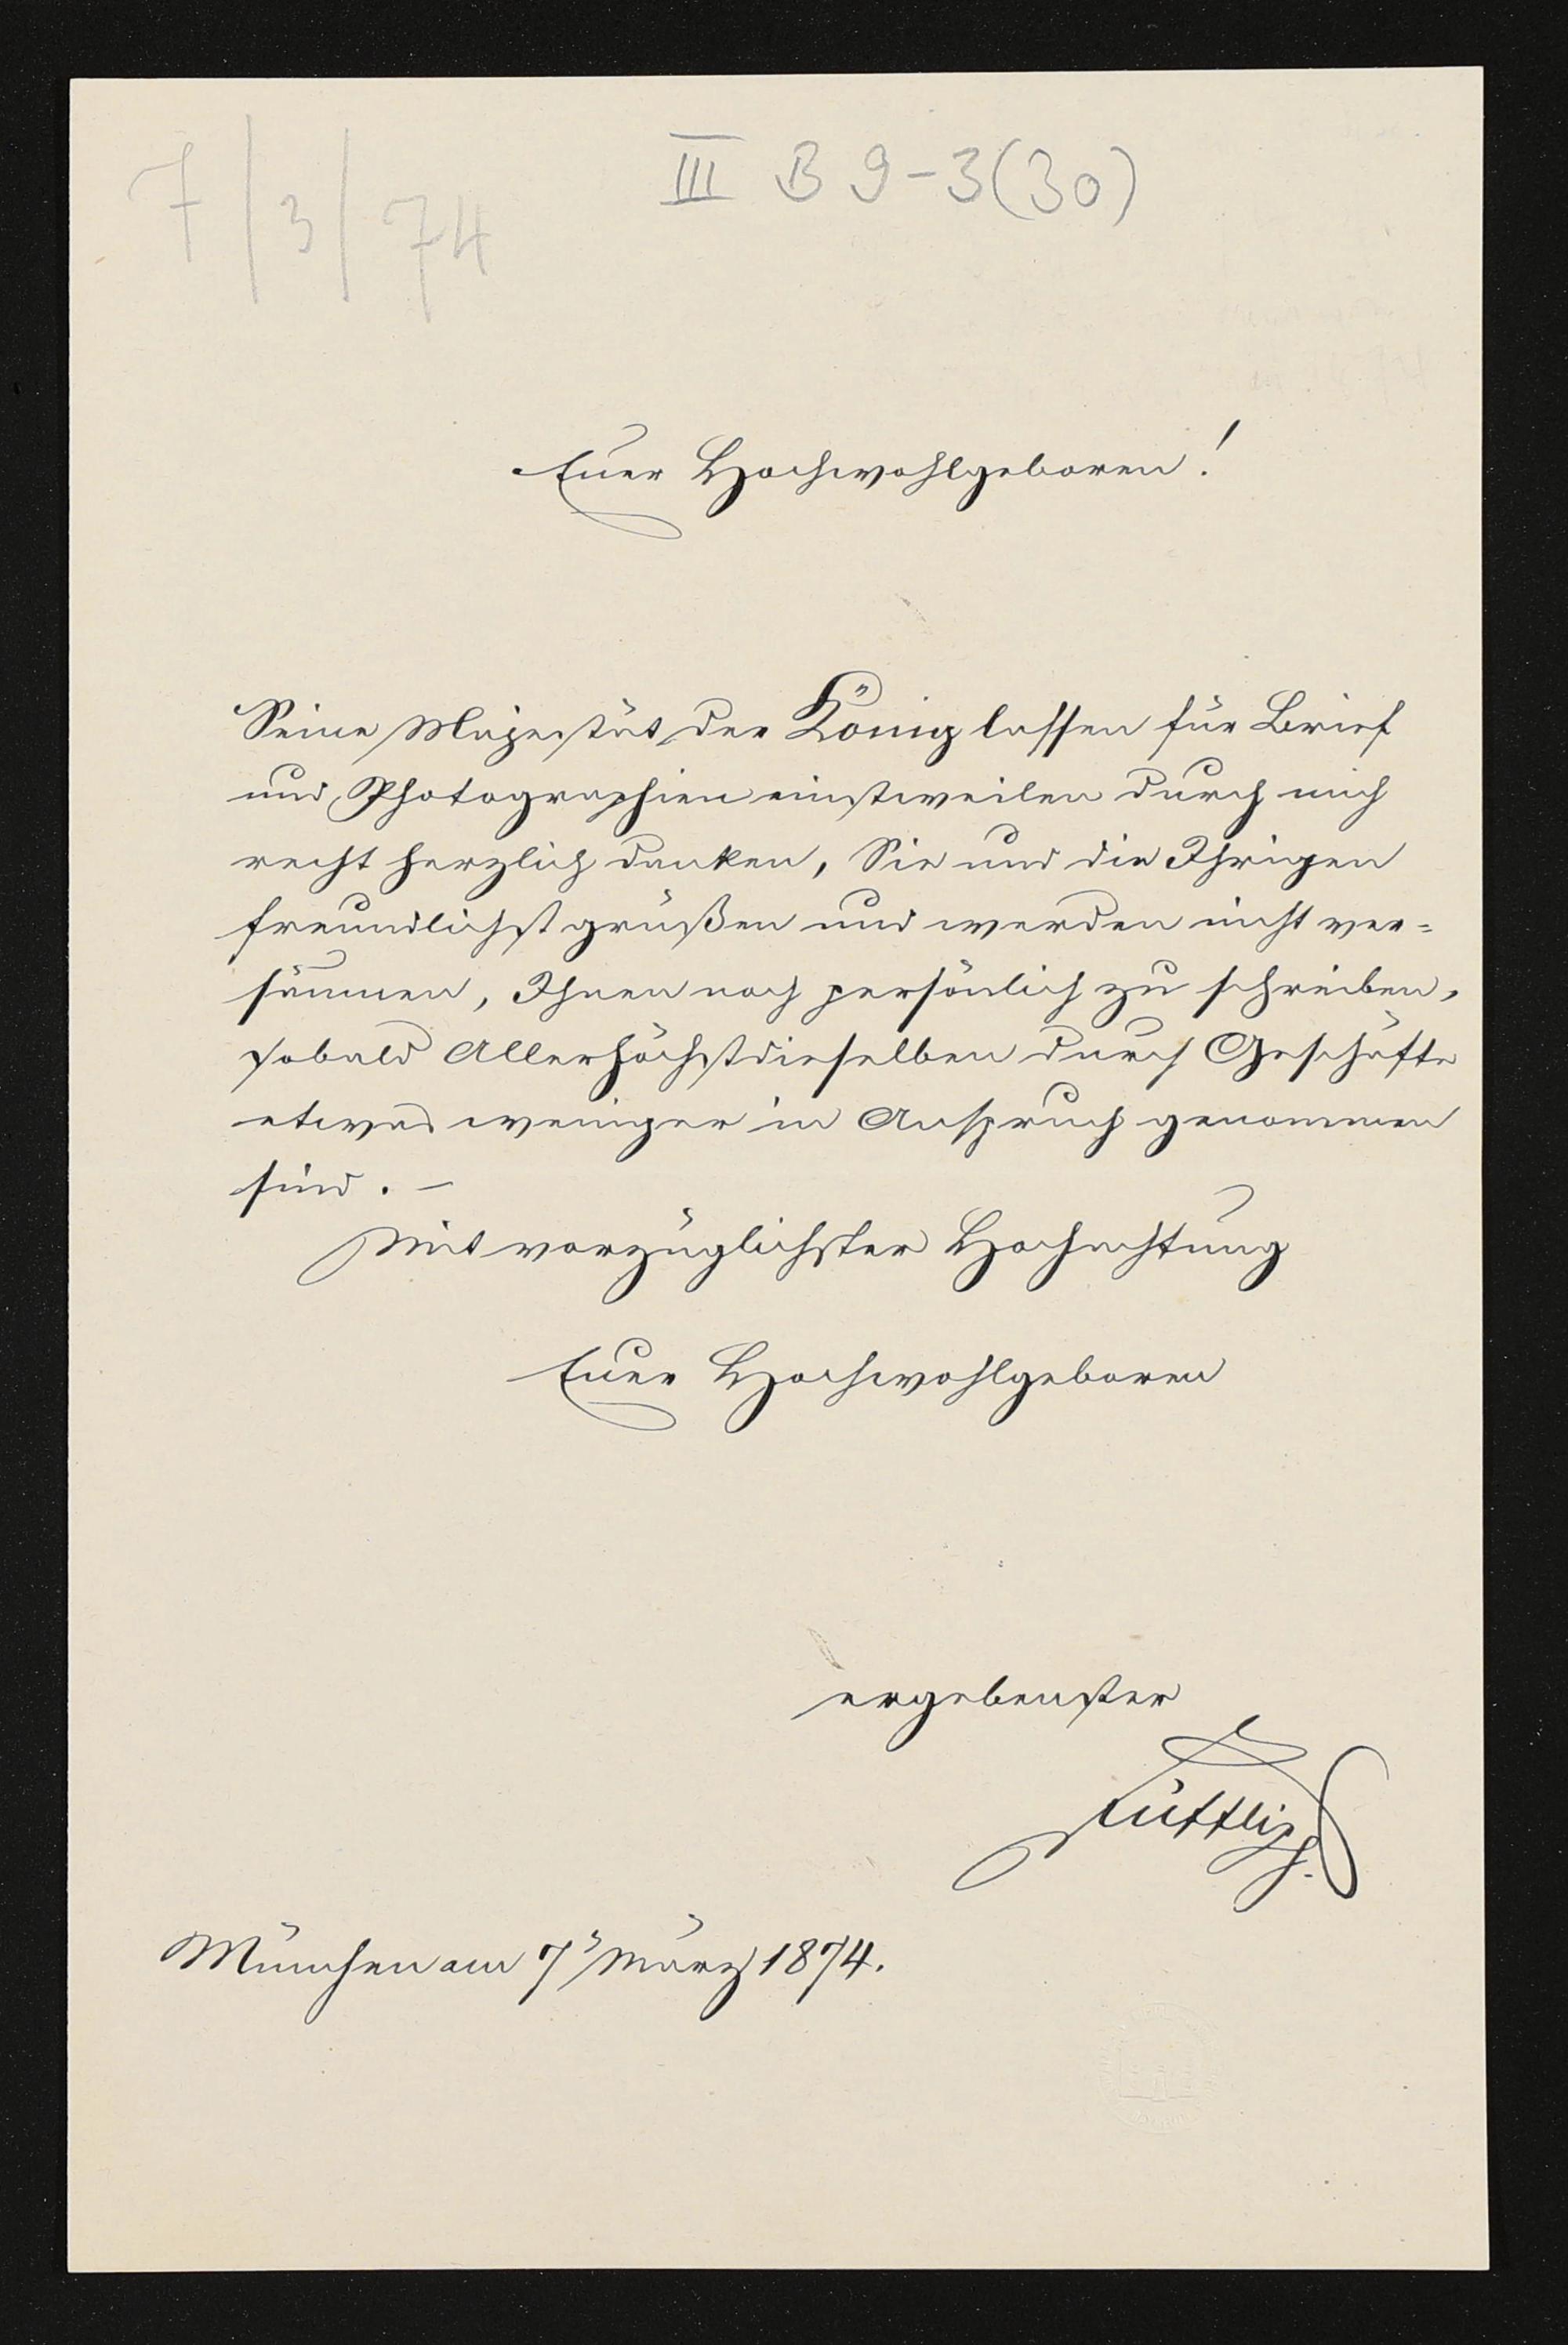 7/3/74
III B 9-3(30)
Euer Hochwohlgeboren!
Seine Majestät der König lassen für Brief
und Photographien einstweilen durch mich
recht herzlich danken, Sie und die Ihrigen
freundlichst grüßen und werden nicht ver=
säumen, Ihnen noch persönlich zu schreiben,
sobald Allerhöchstdieselben durch Geschäfte
etwas weniger in Anspruch genommen
sind. –
Mit vorzüglichster Hochachtung
Euer Hochwohlgeboren
ergebenster
München am 7 März 1874.